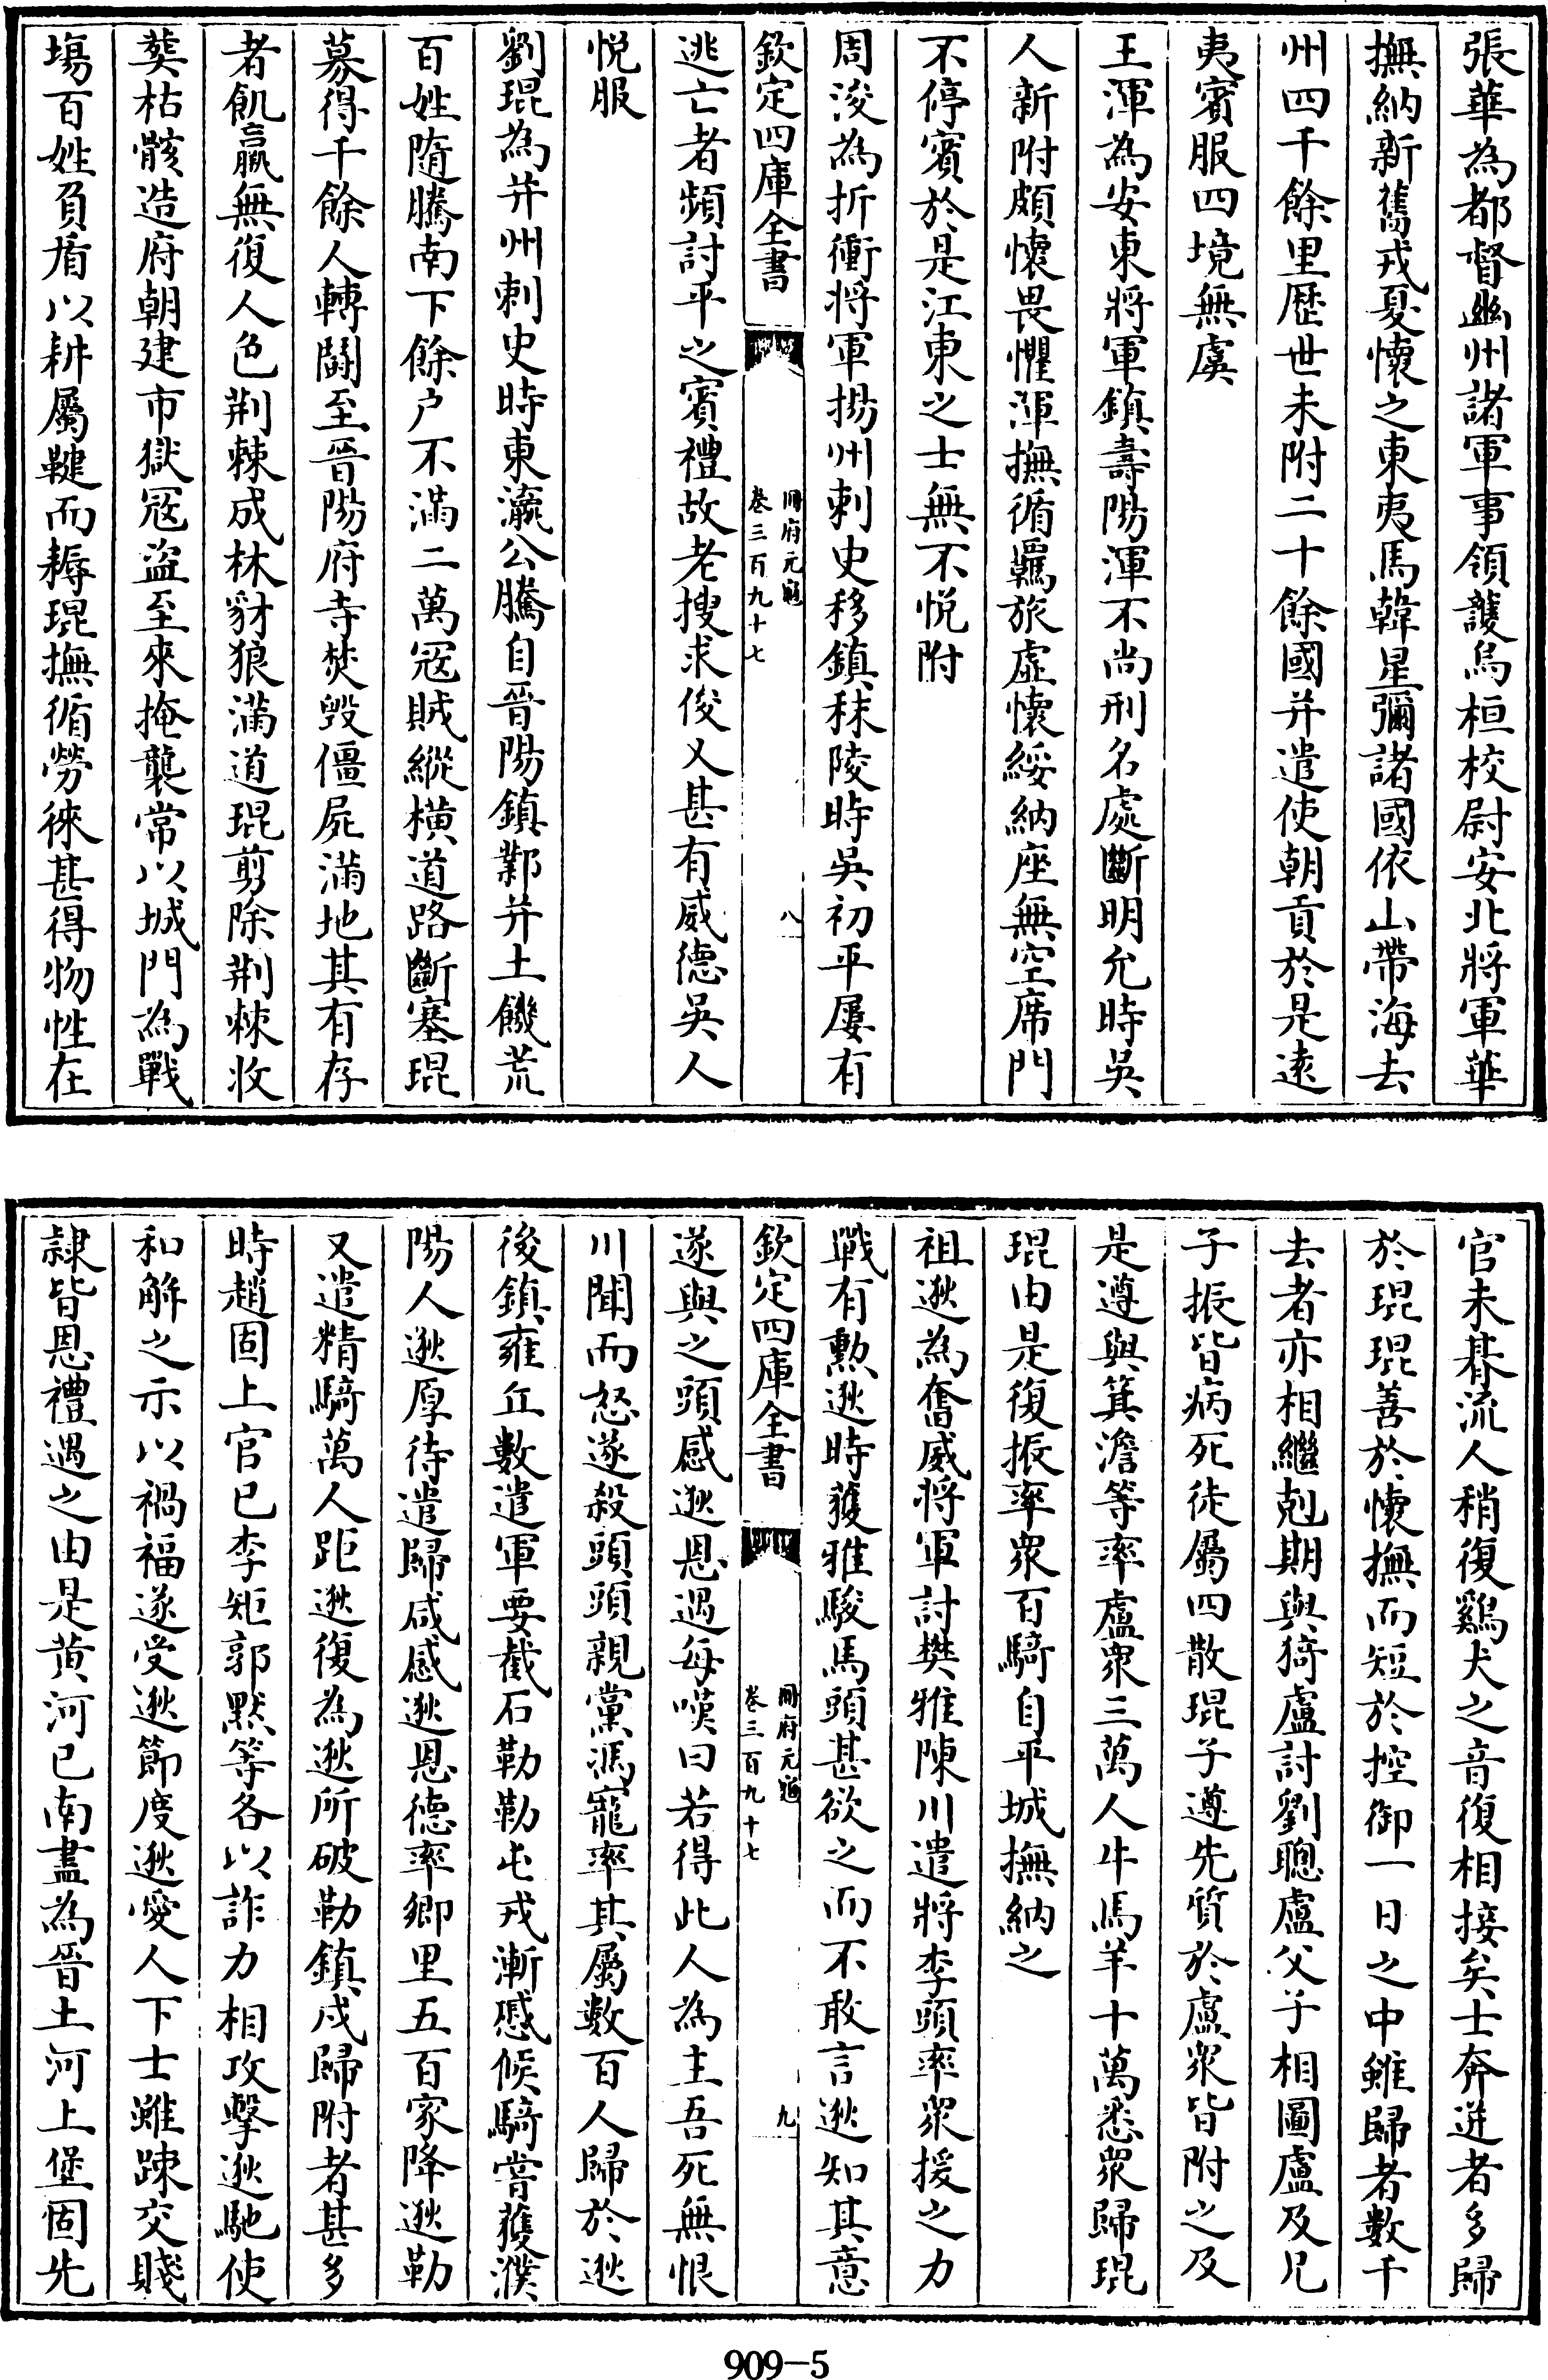 張華為都督幽州諸軍事領護烏桓校尉安北將軍華
撫納新舊戎夏懷之東夷馬韓星彌諸國依山帶海去
州四千餘里歷世未附二十餘國并遣使朝貢於是逺
夷賓服四境無虞
王渾為安東將軍鎮壽陽渾不尚刑名處斷明允時吳
人新附頗懷畏懼渾撫循羈旅虛懷綏納座無空席門
不停賓於是江東之士無不悦附
周浚為折衝將軍揚州刺史移鎮秣陵時吳初平屢有
欽定四庫全書
冊府元龜
卷三百九十七
八
逃亡者頻討平之賓禮故老搜求俊乂甚有威德吳人
悦服
劉琨為并州刺史時東瀛公騰自晉陽鎮鄴并土饑荒
百姓隨騰南下餘户不滿二萬冦賊縱橫道路斷塞琨
募得千餘人轉鬪至晉陽府寺焚毀僵屍滿地其有存
者飢羸無復人色荆棘成林豺狼滿道琨剪除荆棘收
葬枯骸造府朝建市獄冦盜至來掩襲常以城門為戰
塲百姓負盾以耕屬鞬而耨琨撫循勞徠甚得物性在
官未朞流人稍復鷄犬之音復相接矣士奔迸者多歸
於琨琨善於懷撫而短於控御一日之中雖歸者數千
去者亦相繼剋期與猗盧討劉聰盧父子相圖盧及兄
子振皆病死徒屬四散琨子遵先質於盧衆皆附之及
是遵與箕澹等率盧衆三萬人牛馬羊十萬悉衆歸琨
琨由是復振率衆百騎自平城撫納之
祖逖為奮威將軍討樊雅陳川遣將李頭率衆援之力
戰有勲逖時獲雅駿馬頭甚欲之而不敢言逖知其意
欽定四庫全書
冊府元龜
卷三百九十七
九
遂與之頭感逖恩遇每嘆曰若得此人為主吾死無恨
川聞而怒遂殺頭頭親黨馮寵率其屬數百人歸於逖
後鎮雍丘數遣軍要截石勒勒屯戎漸慼候騎嘗獲濮
陽人逖厚待遣歸咸感逖恩德率鄉里五百家降逖勒
又遣精騎萬人距逖復為逖所破勒鎮戍歸附者甚多
時趙固上官巳李矩郭默等各以詐力相攻擊逖馳使
和解之示以禍福遂受逖節度逖愛人下士雖踈交賤
隷皆恩禮遇之由是黄河已南盡為晉土河上堡固先
909-5